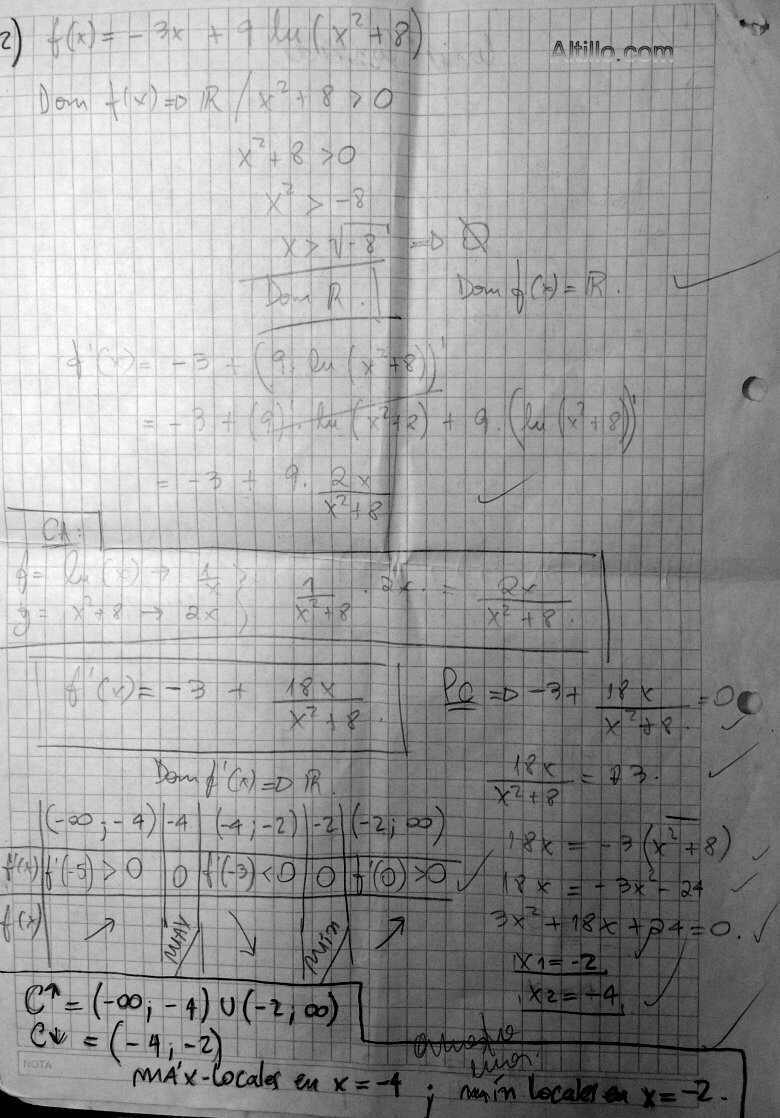 2) f(x) = -3x + 9 ln (x²+8)
Altillo.com
Dom f(x) => ℝ / x²+8 > 0
x²+8 > 0
x² > -8
x > √-8 => ∅
Dom ℝ.
Dom f(x) = ℝ.
f'(x) = -3 + (9. ln (x²+8))'
= -3 + (9)'. ln (x²+8) + 9. (ln (x²+8))'
= -3 + 9. 2x/(x²+8)
CA:
f = ln (x) → 1/x
g = x²+8 → 2x
1/(x²+8) . 2x. = 2x/(x²+8).
f'(x) = -3 + 18x/(x²+8).
PC => -3 + 18x/(x²+8) = 0
18x/(x²+8) = 3.
Dom f'(x) => ℝ.
18x = -3 (x²+8)
18x = -3x² - 24
3x² + 18x + 24 = 0.
x1 = -2
x2 = -4
(-∞; -4) -4 (-4; -2) -2 (-2; ∞)
f'(x) f'(-5) > 0 0 f'(-3) < 0 0 f'(0) > 0
f(x) ↗ MAX ↘ MIN ↗
C↑ = (-∞; -4) ∪ (-2; ∞)
C↓ = (-4; -2)
NOTA
MÁX-Locales en x = -4 ; mín locales en x = -2.